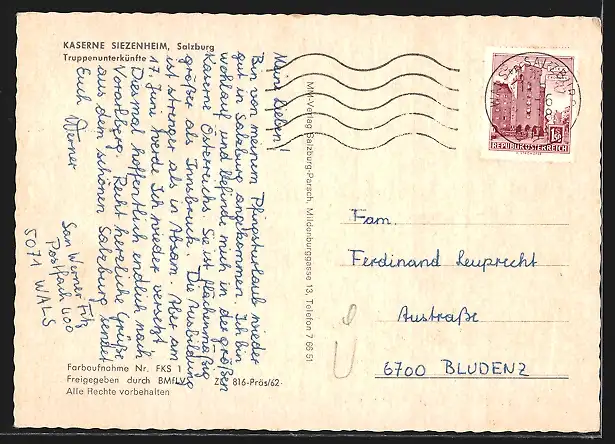 KASERNE SIEZENHEIM, Salzburg
Truppenunterkünfte
Meine Lieben!
Bin von meinem Pfingsturlaub wieder
gut in Salzburg angekommen. Ich bin
wohlauf und befind mich in der größten
Kaserne Österreichs. Sie ist flächenmäßig
größer als Innsbruck. Die Ausbildung
ist strenger als in Absam. Aber am
17. Juni werde Ich wieder versetzt
Diesmal hoffentlich endlich nach
Vorarlberg. Recht herzliche Grüße
aus dem schönen Salzburg sendet
Euch Werner
San Werner Fitz
Postfach 400
5071 WALS
Farbaufnahme Nr. FKS 1
Freigegeben durch BMFLV ZL 816-Präs/62
Alle Rechte vorbehalten
MM-Verlag Salzburg-Parsch, Mildenburggasse 13, Telefon 7 66 51
REPUBLIK ÖSTERREICH
Fam.
Ferdinand Leuprecht
Austraße
6700 BLUDENZ